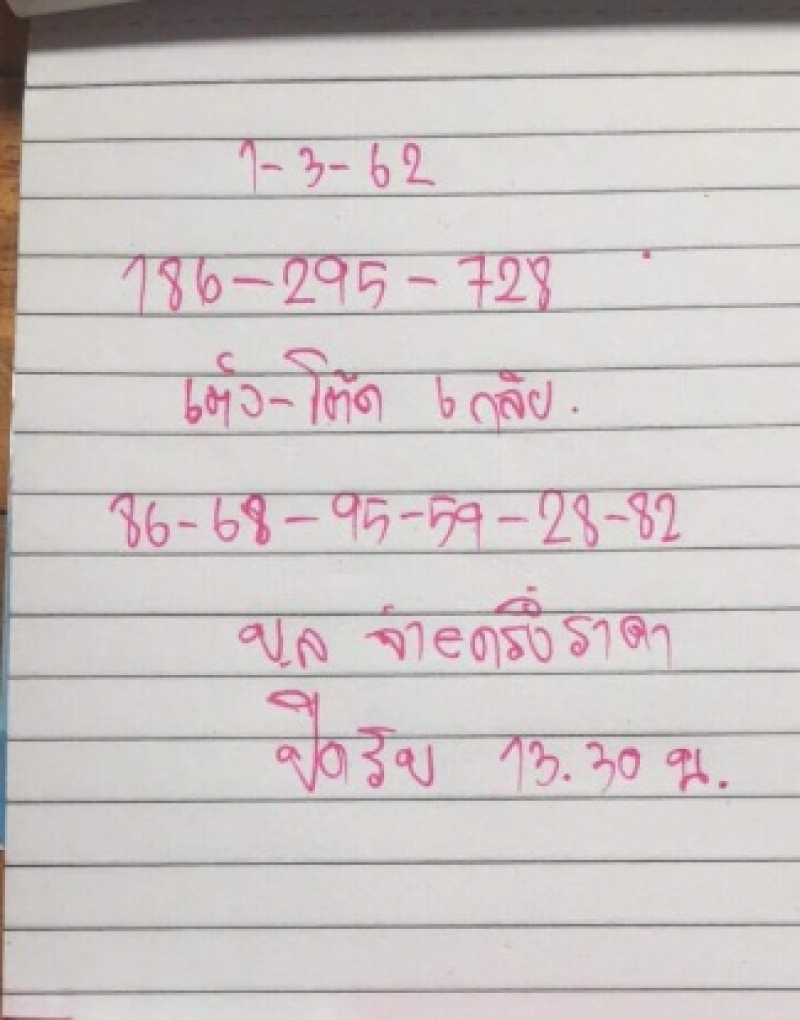 1-3-62
186-295-728
เต็ง-โต๊ด 6 กลับ.
86-68-95-59-28-82
บ,ล จ่ายครึ่งราคา
ปิดรับ 13.30 น.